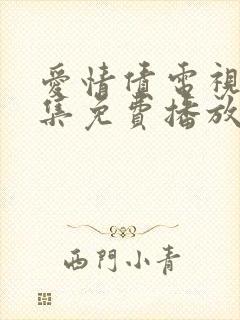 愛情債電視
集免費播放
西門小青